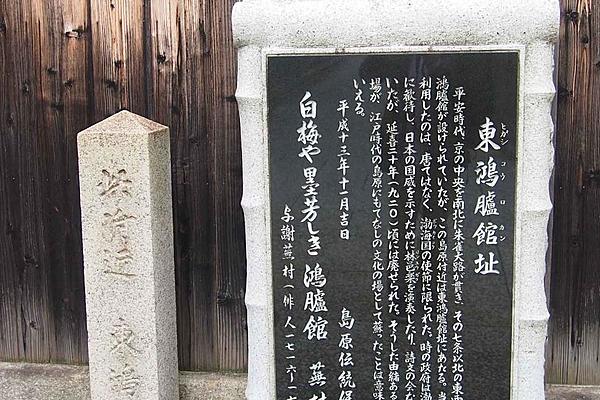 東鴻臚館址
ヒガシ コウ ロ カン
平安時代、京の中央を南北に朱雀大路が貫き、その七条以北の東西
鴻臚館が設けられていたが、この島原付近は東鴻臚館址にあたる。当
利用したのは、唐ではなく、渤海国の使節に限られた。時の政府は渤
に歓待し、日本の国威を示すために林邑楽を演奏したり、詩文の会な
いたが、延喜二十年(九二〇)頃には廃せられた。そうした由緒ある
場が、江戸時代の島原にもてなしの文化の場として蘇ったことは意味
いえる。
平成十三年十一月吉日
島原伝統保
白梅や墨芳しき鴻臚館 蕪村
与謝蕪村(俳人一七一六〜一七